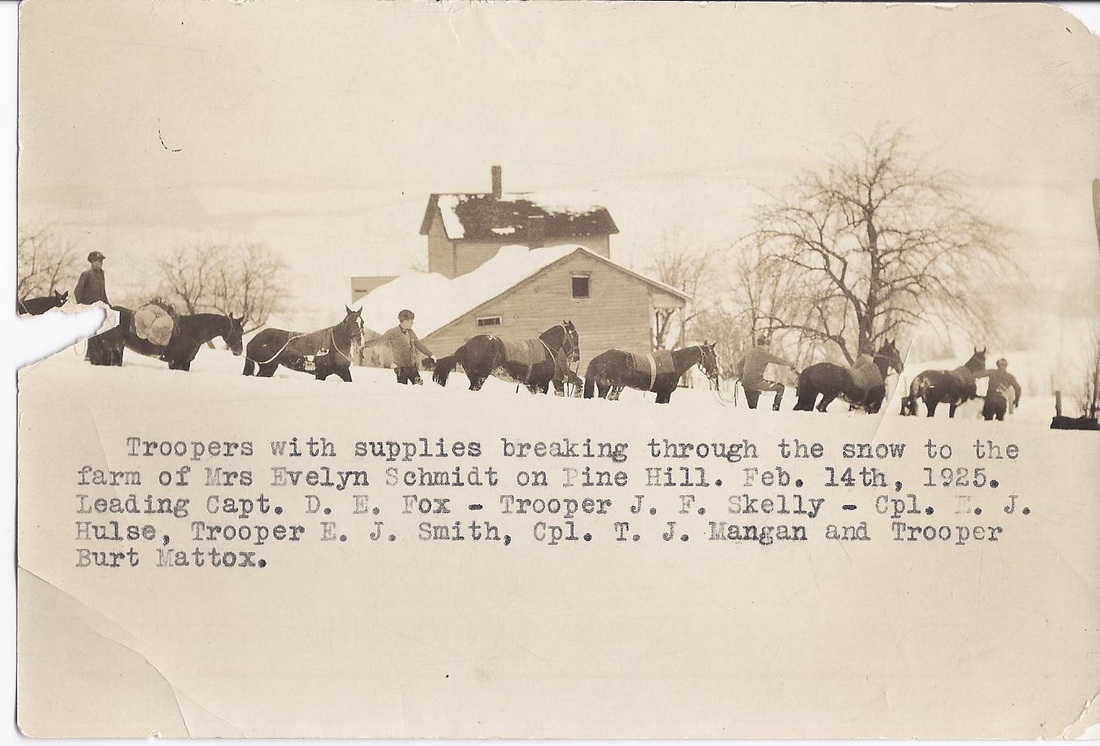 Troopers with supplies breaking through the snow to the
farm of Mrs Evelyn Schmidt on Pine Hill. Feb. 14th, 1925.
Leading Capt. D. E. Fox - Trooper J. F. Skelly - Cpl. J.
Hulse, Trooper E. J. Smith, Cpl. T. J. Mangan and Trooper
Burt Mattox.